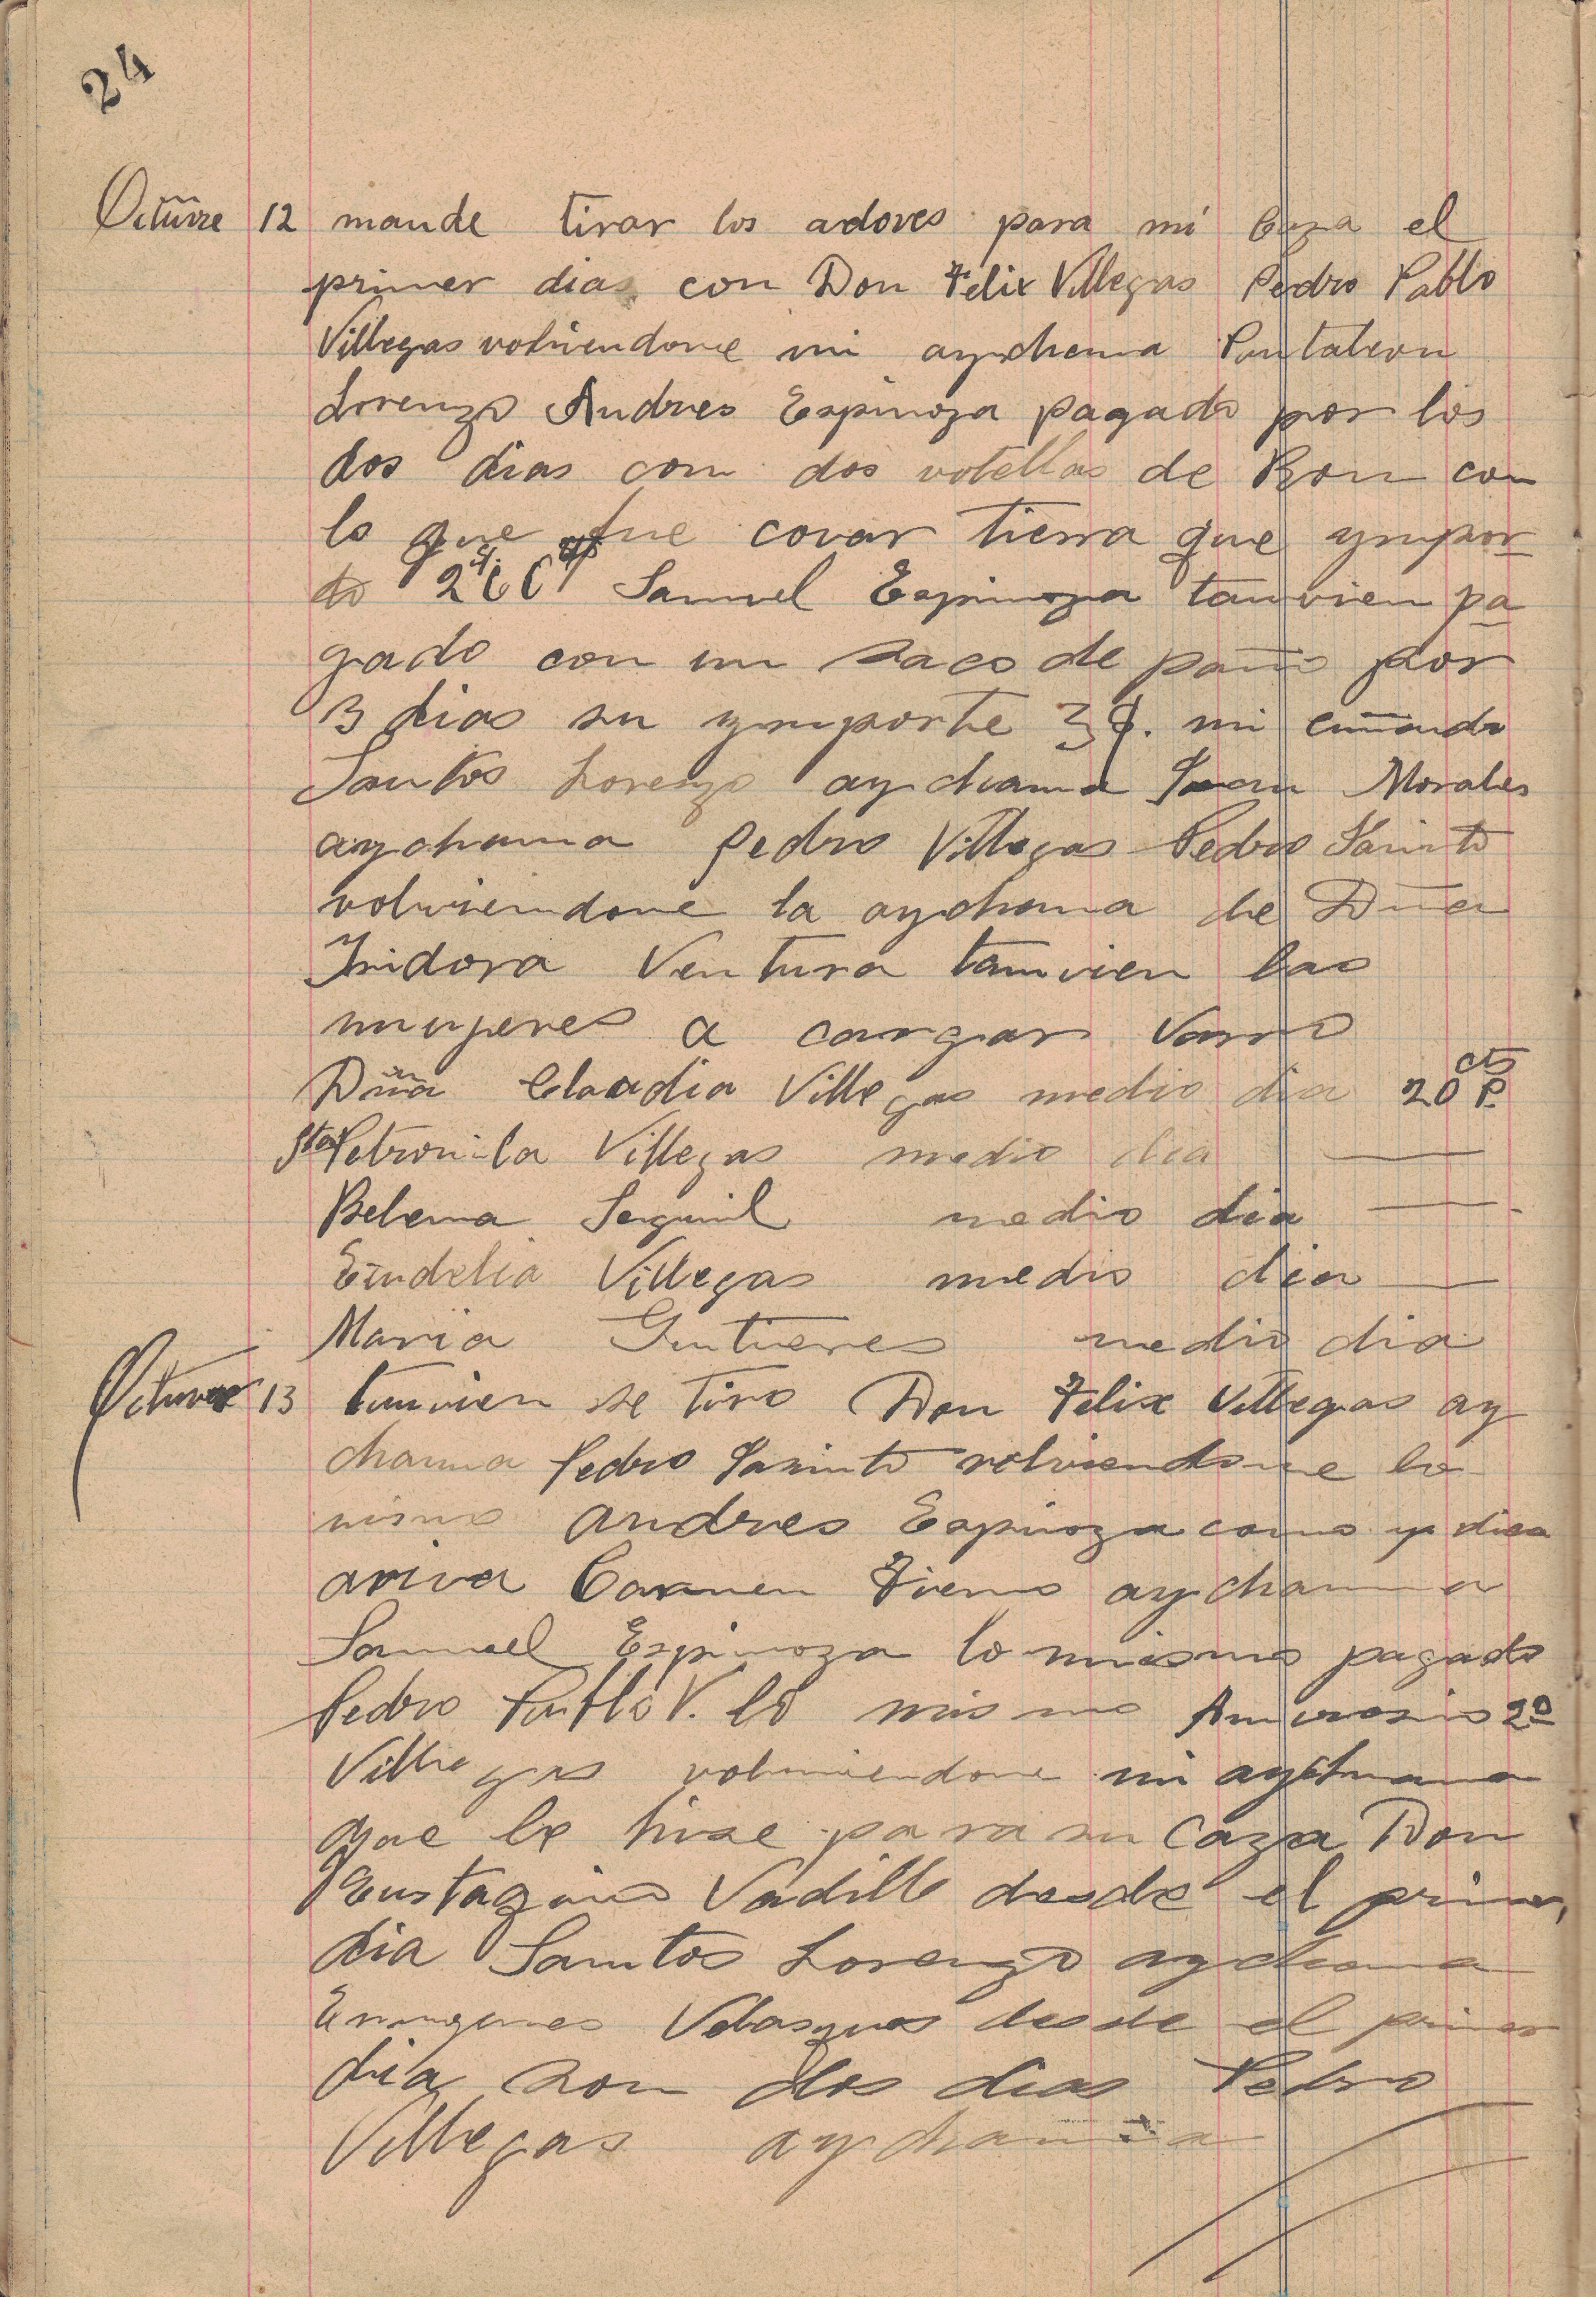 24
Octūvre 12 mande tirar los adoves para mi Caza el
primer dias con Don Felix Villegas Pedro Pablo
Villegas volviendome mi aychama Pantaleon
Lorenzo Andres Espinoza pagado por los
dos dias con dos votellas de Ron con
lo que fue covar tierra que ympor-
to Samuel Espinoza tanvien pa
gado con un saco de paño por
3 dias su ymporte 3$. mi cuñando
Santos Lorenzo aychama Juan Morales
aychama Pedro Villegas Pedro Jacinto
volviendome la aychama de Dña
Isidora Ventura tamvien las
mugeres a cargar varro
Dña Claudia Villegas medio dia 20 cts P.
Sta Petronila Villegas medio dia —
Belema medio dia —
Eudelia Villegas medio dia —
Maria Gutierres medio dia
Octuvre 13 tamvien se tiro Don Felix Villegas ay
chama Pedro Jasinto volviendome lo
mismo Andres Espinoza como ya dice
arriva Carmen aychama
Samuel Espinoza lo mismo pagado
Pedro Pablo V. lo mismo Amvrosio 2º
Villegas volviendome mi aychama
que le hise para su Caza Don
Eustaquio Vadillo desde el primer
dia Santos Lorenzo aychama
Velasques desde el primer
dia son dos dias Pedro
Villegas aychama